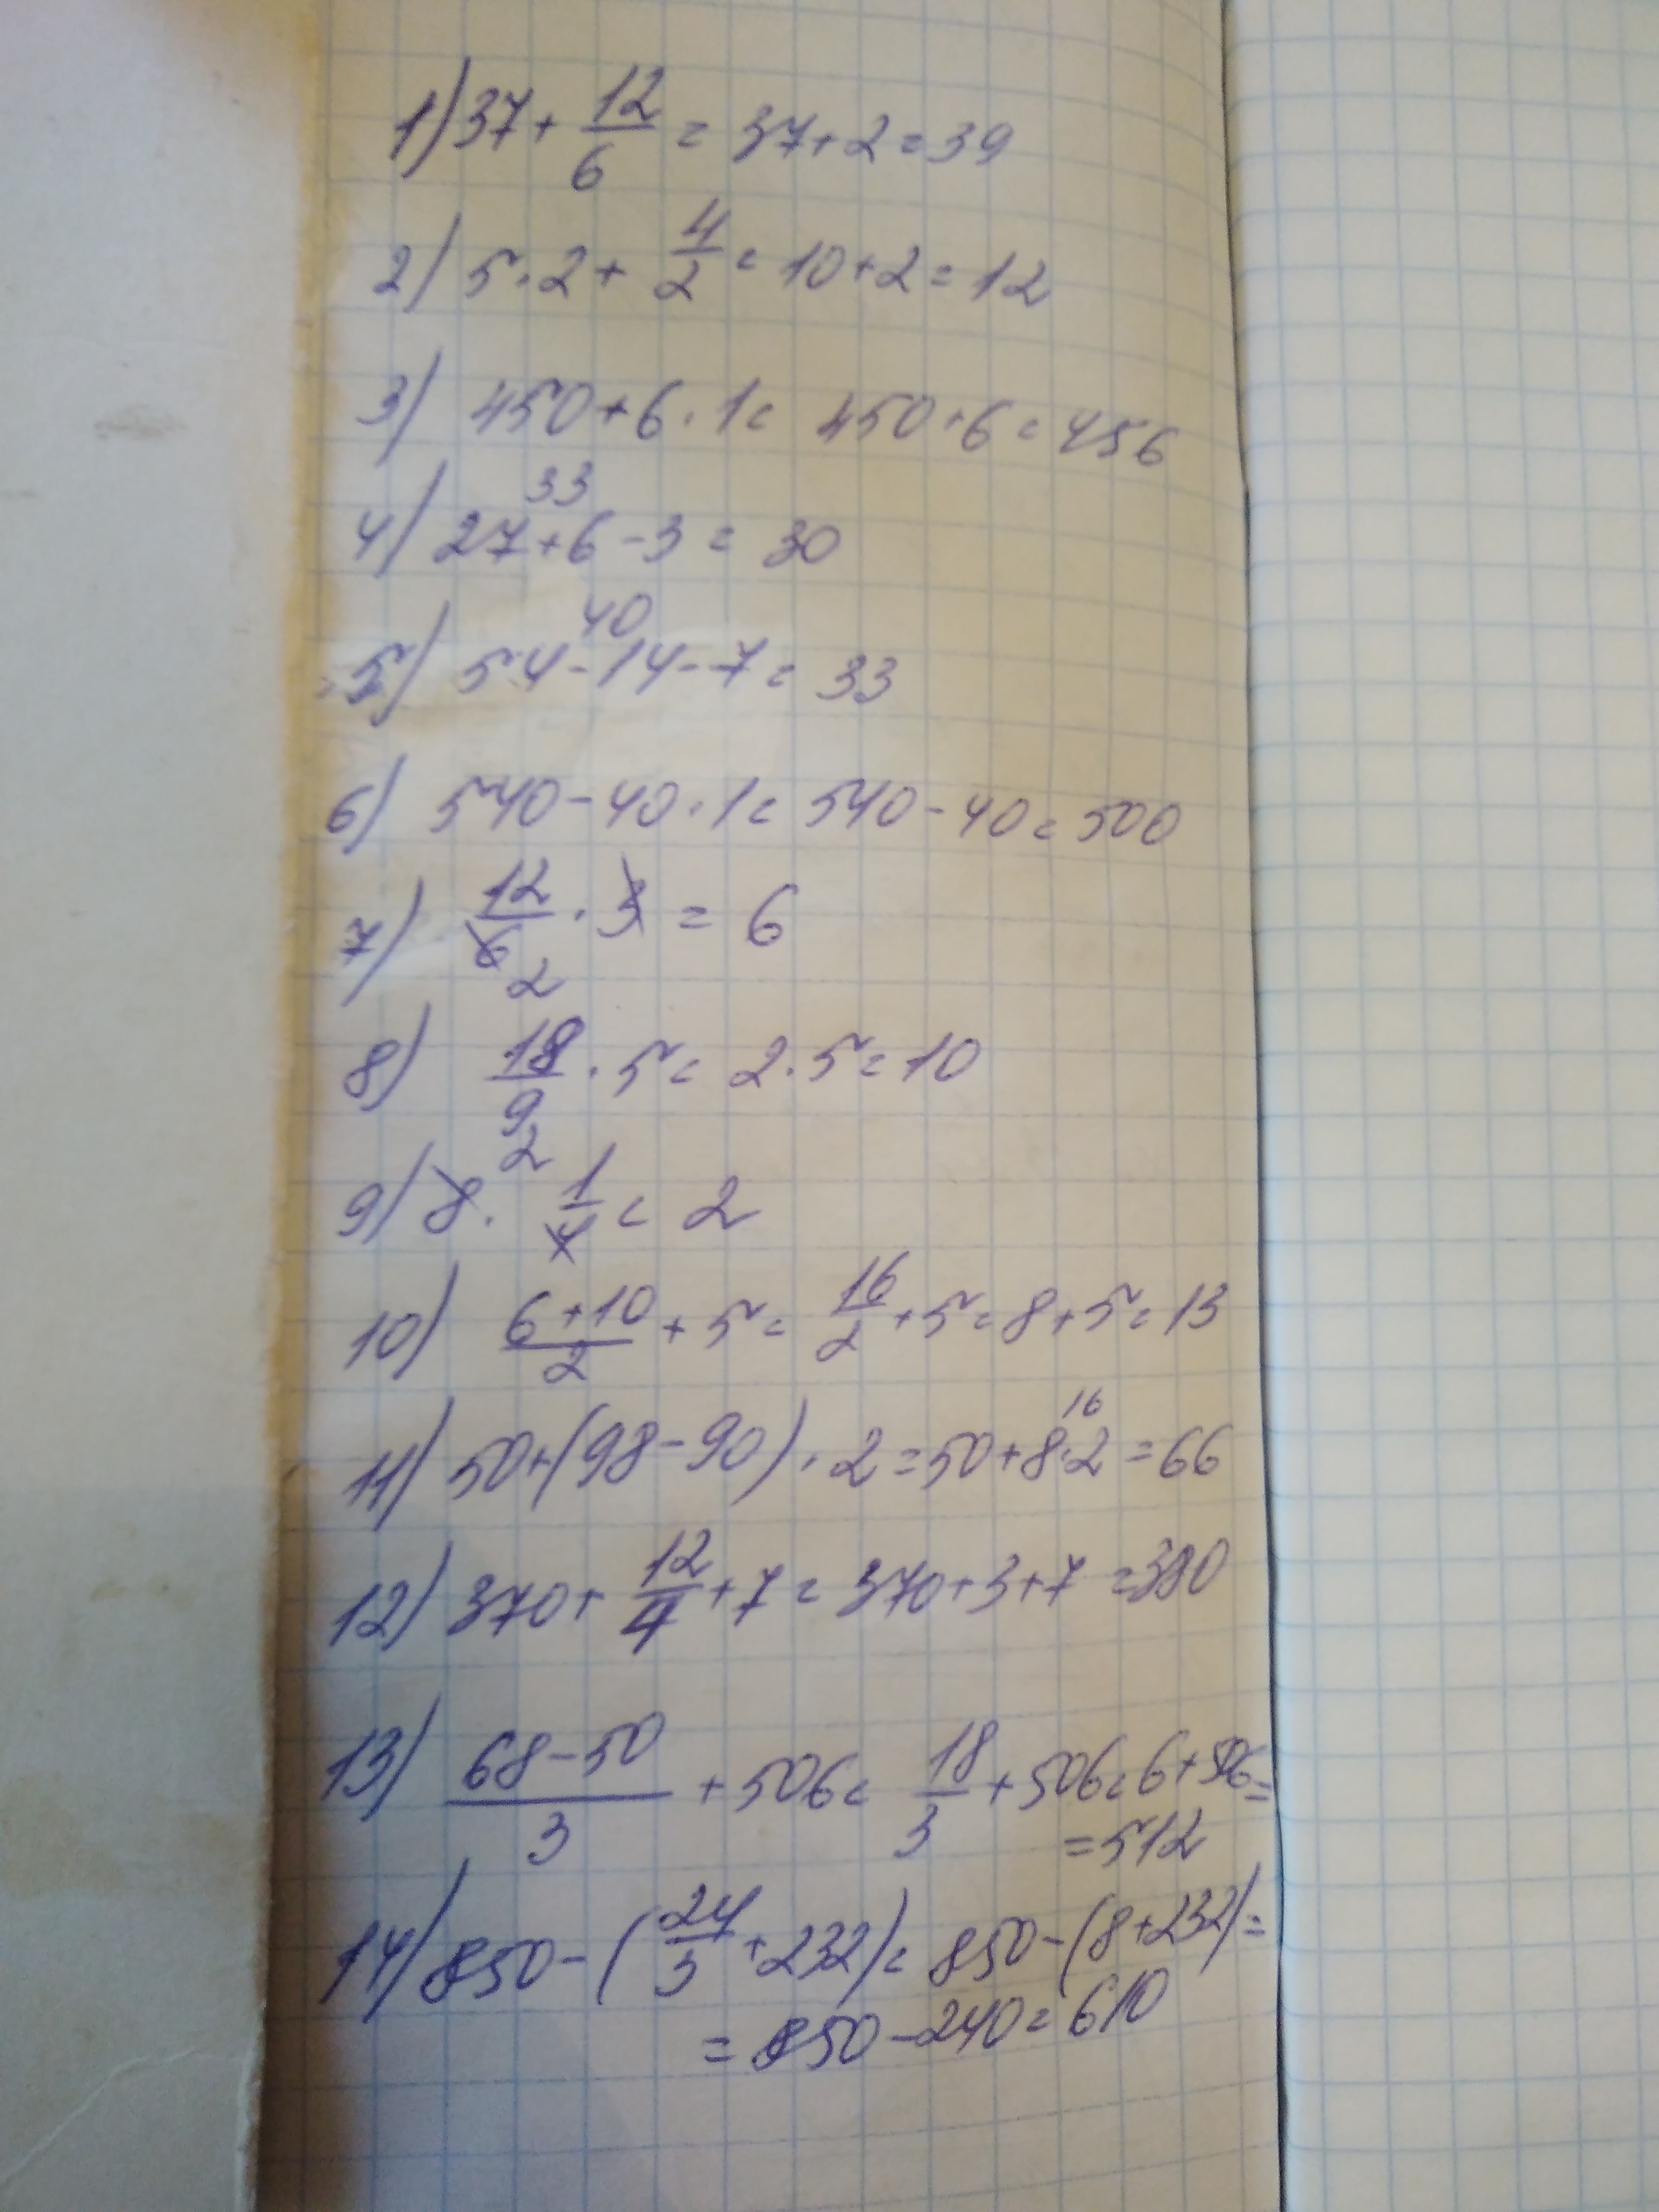 1) 37 + 12/6 = 37 + 2 = 39
2) 5 · 2 + 4/2 = 10 + 2 = 12
3) 450 + 6 · 1 = 450 + 6 = 456
33
4) 27 + 6 - 3 = 30
40
5) 54 - 14 - 7 = 33
6) 540 - 40 · 1 = 540 - 40 = 500
7) 12/6 · 3 = 6
2
8) 18/9 · 5 = 2 · 5 = 10
2
9) 8 · 1/4 = 2
10) (6 + 10)/2 + 5 = 16/2 + 5 = 8 + 5 = 13
16
11) 50 + (98 - 90) · 2 = 50 + 8 · 2 = 66
12) 370 + 12/4 + 7 = 370 + 3 + 7 = 380
13) (68 - 50)/3 + 506 = 18/3 + 506 = 6 + 506 =
= 512
14) 850 - (24/3 + 232) = 850 - (8 + 232) =
= 850 - 240 = 610